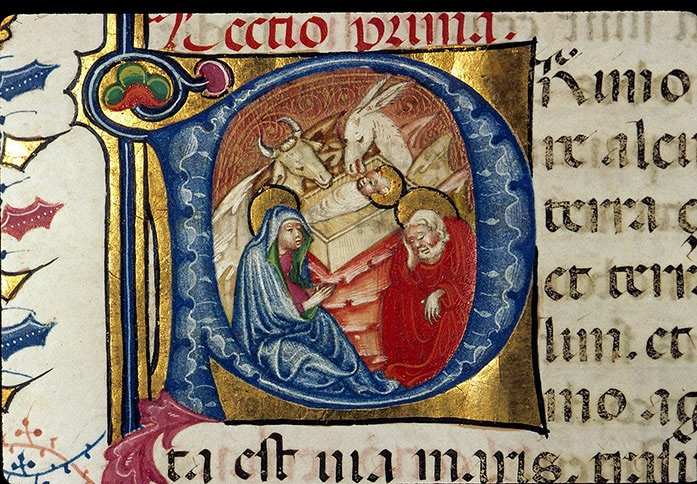 Lectio prima.
Rimo
re aleu
terra
et terra
lim. et
mo ag
ta est uia maris.